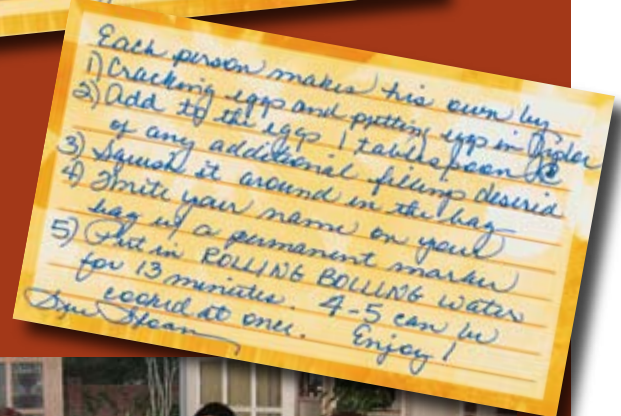 Each person makes his own by
1) Cracking eggs and putting eggs in Ziploc
2) Add to the eggs 1 tablespoon
of any additional filling desired
3) Squish it around in the bag
4) Write your name on your
bag w/ a permanent marker
5) Put in ROLLING BOLLING water
for 13 minutes. 4-5 can be
cooked at once. Enjoy!
Sloan